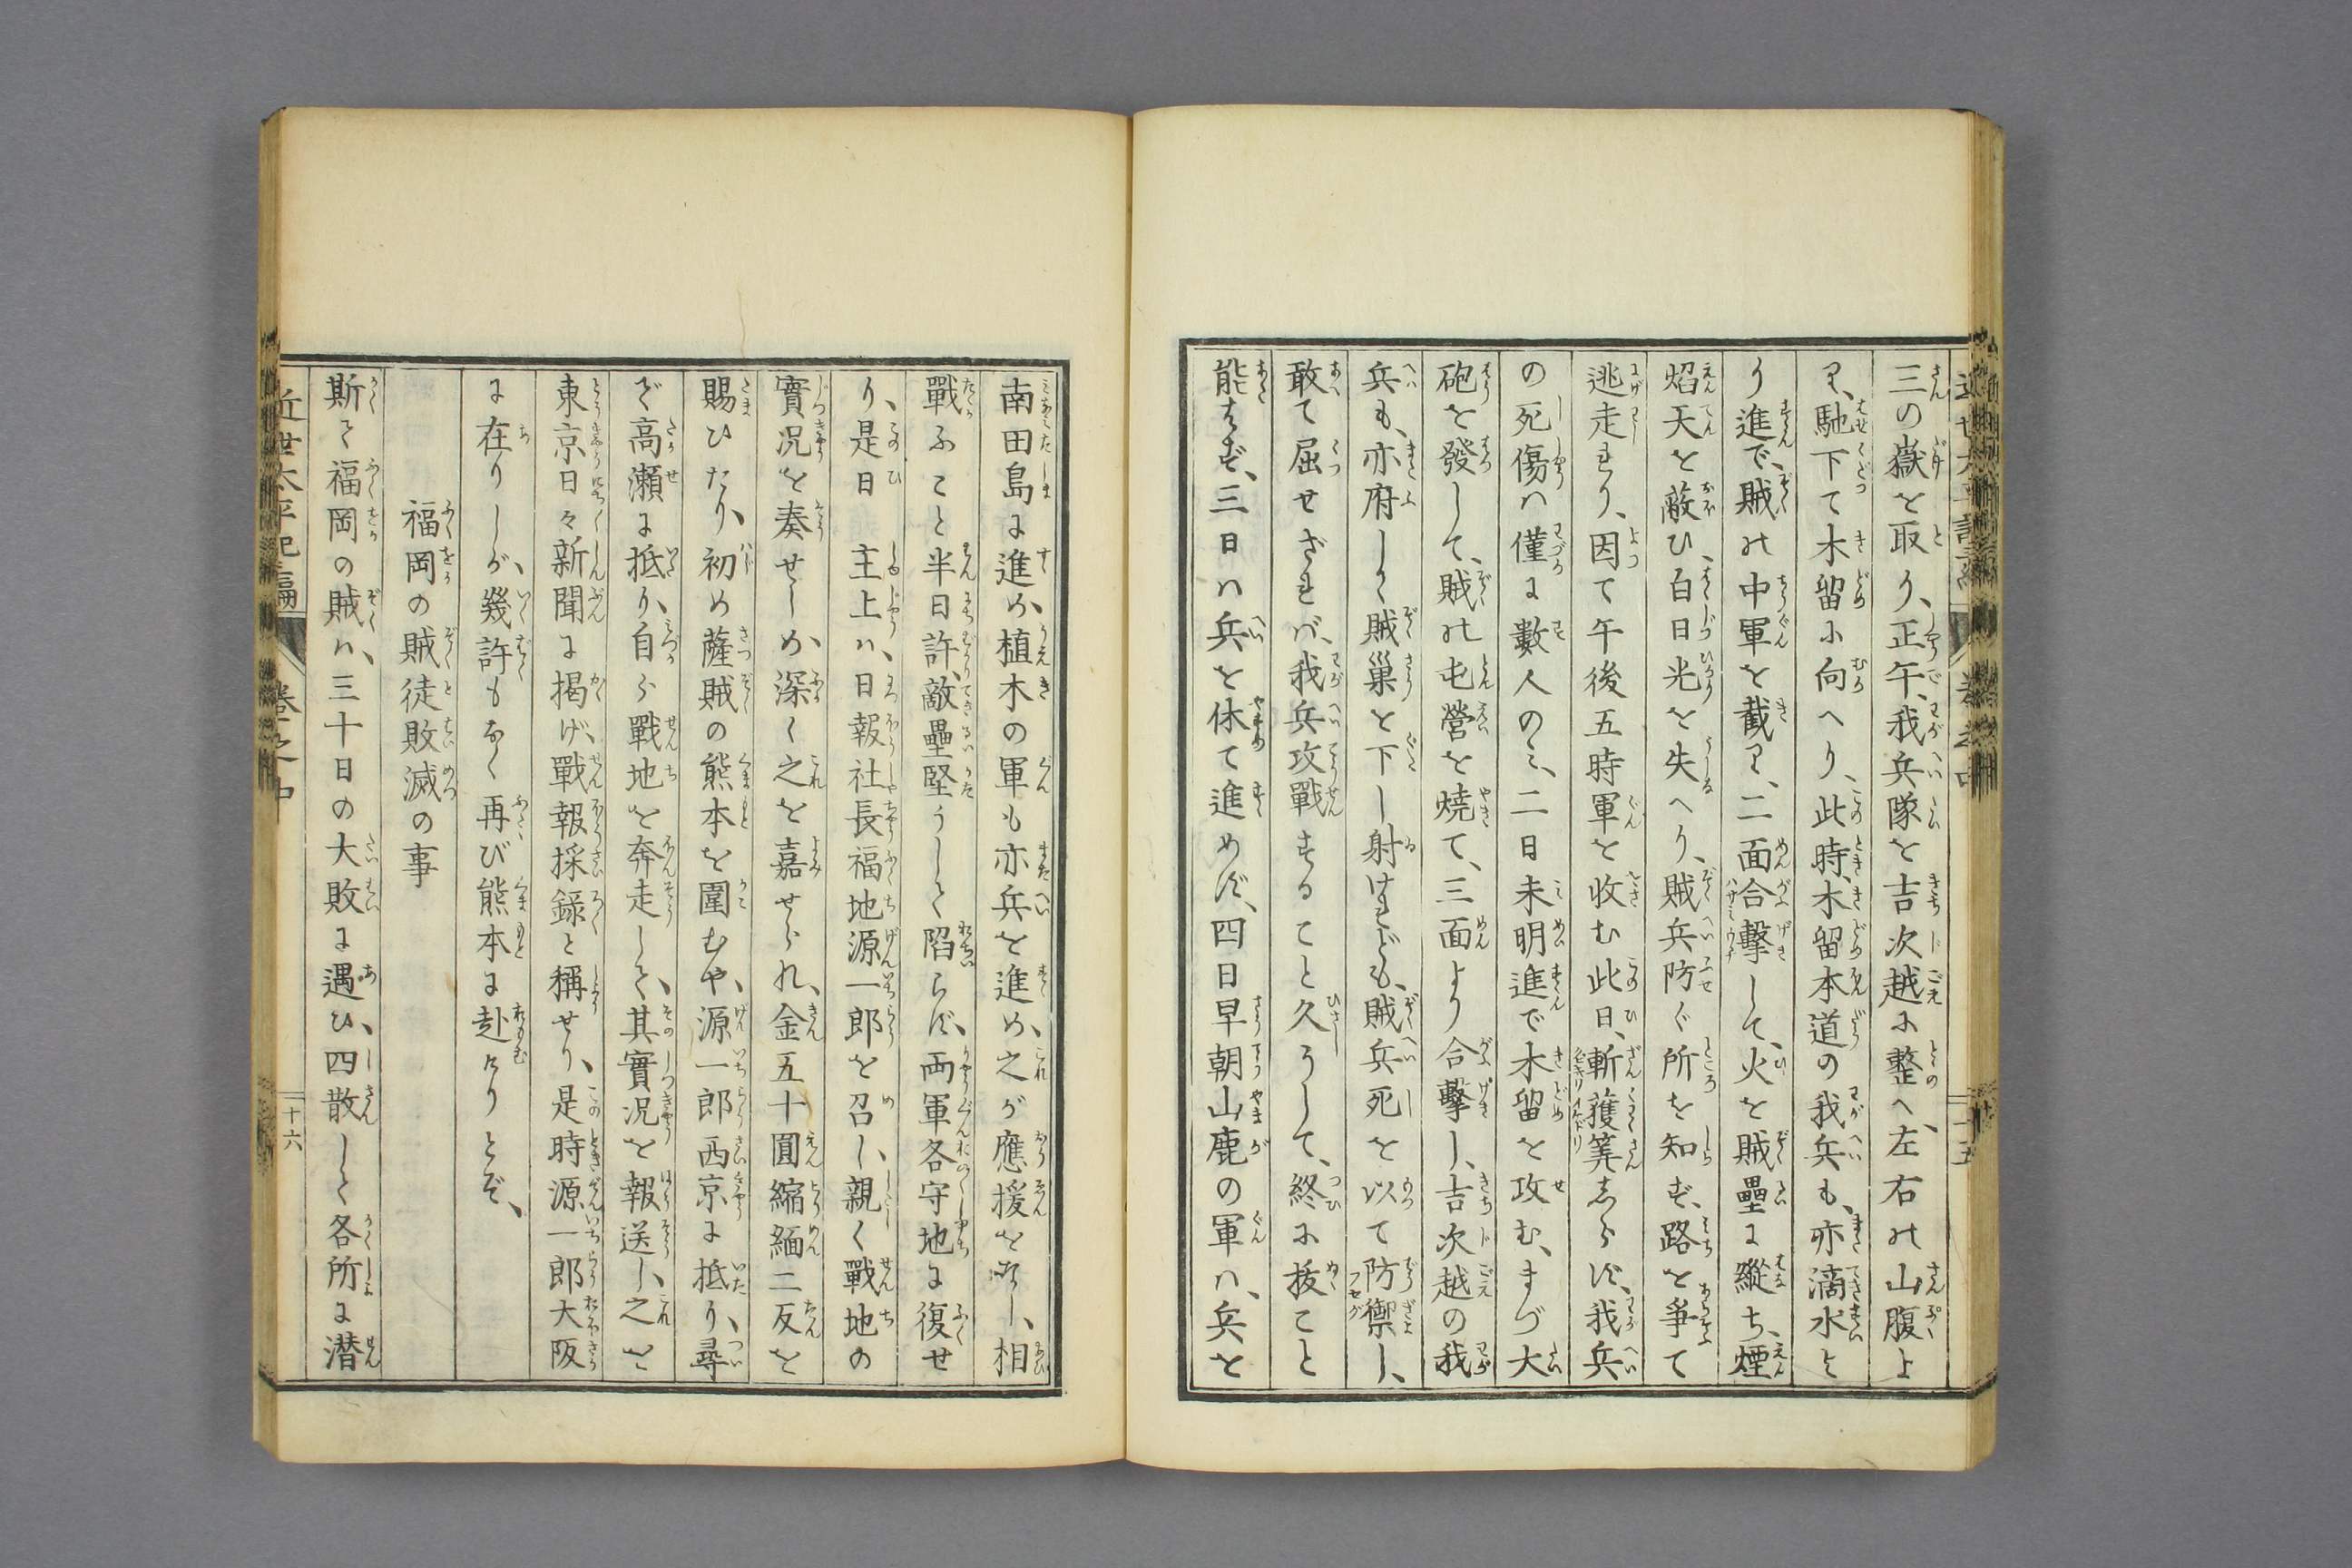 三の嶽を取り、正午、我兵隊を吉次越に整へ、左右の山腹よ
り、馳下て木留に向へり、此時、木留本道の我兵も、亦滴水よ
り進で、賊の中軍を截り、二面合擊して、火を賊壘に縱ち、煙
焰天を蔽ひ、白日光を失へり、賊兵防ぐ所を知らず、路を爭て
逃走れり、因て午後五時軍を收む此日、斬獲筭ならず、我兵
の死傷は僅に數人のみ、二日未明進で木留を攻む、まづ大
砲を發して、賊の屯營を燒て、三面より合擊し、吉次越の我
兵も、亦府しく賊巢を下し射けれども、賊兵死を以て防禦し、
敢て屈せざれば、我兵攻戰すること久うして、終に拔こと
能はず、三日は兵を休て進めず、四日早朝山鹿の軍は、兵を
南田島に進め、植木の軍も亦兵を進め、之が應援を爲し、相
戰ふこと半日許、敵壘堅うして陷らず、両軍各守地に復せ
り、是日 主上は、日報社長福地源一郎を召し、親く戰地の
實況を奏せしめ、深く之を嘉せられ、金五十圓縮緬二反を
賜ひたり、初め薩賊の熊本を圍むや、源一郎西京に抵り、尋
で高瀬に抵り、自ら戰地を奔走して、其實況を報送し、之を
東京日々新聞に揭げ、戰報採録と稱せり、是時源一郎大阪
に在りしが、幾許もなく再び熊本に赴けりとぞ、
福岡の賊徒敗滅の事
斯て福岡の賊は、三十日の大敗に遇ひ、四散して各所に潜
近世太平記二編
卷之中
十六